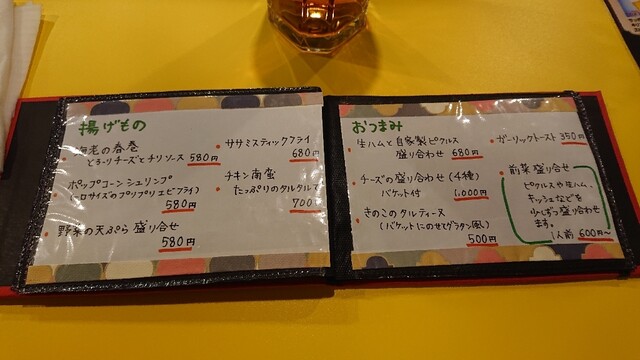 揚げもの
海老の春巻
とろ〜りチーズとチリソース 580円
ポップコーンシュリンプ
(一口サイズのプリプリエビフライ)
580円
野菜の天ぷら盛り合せ
580円
ササミスティックフライ
680円
チキン南蛮
たっぷりのタルタルで
700
おつまみ
生ハムと自家製ピクルス
盛り合わせ 680円
チーズの盛り合わせ(4種)
バケット付 1,000円
きのこのタルティーヌ
(バケットにのせてグラタン風)
500円
ガーリックトースト 350円
前菜盛り合せ
ピクルスや生ハム、
キッシュなどを
少しずつ盛り合わせ
ます。
1人前 600円〜